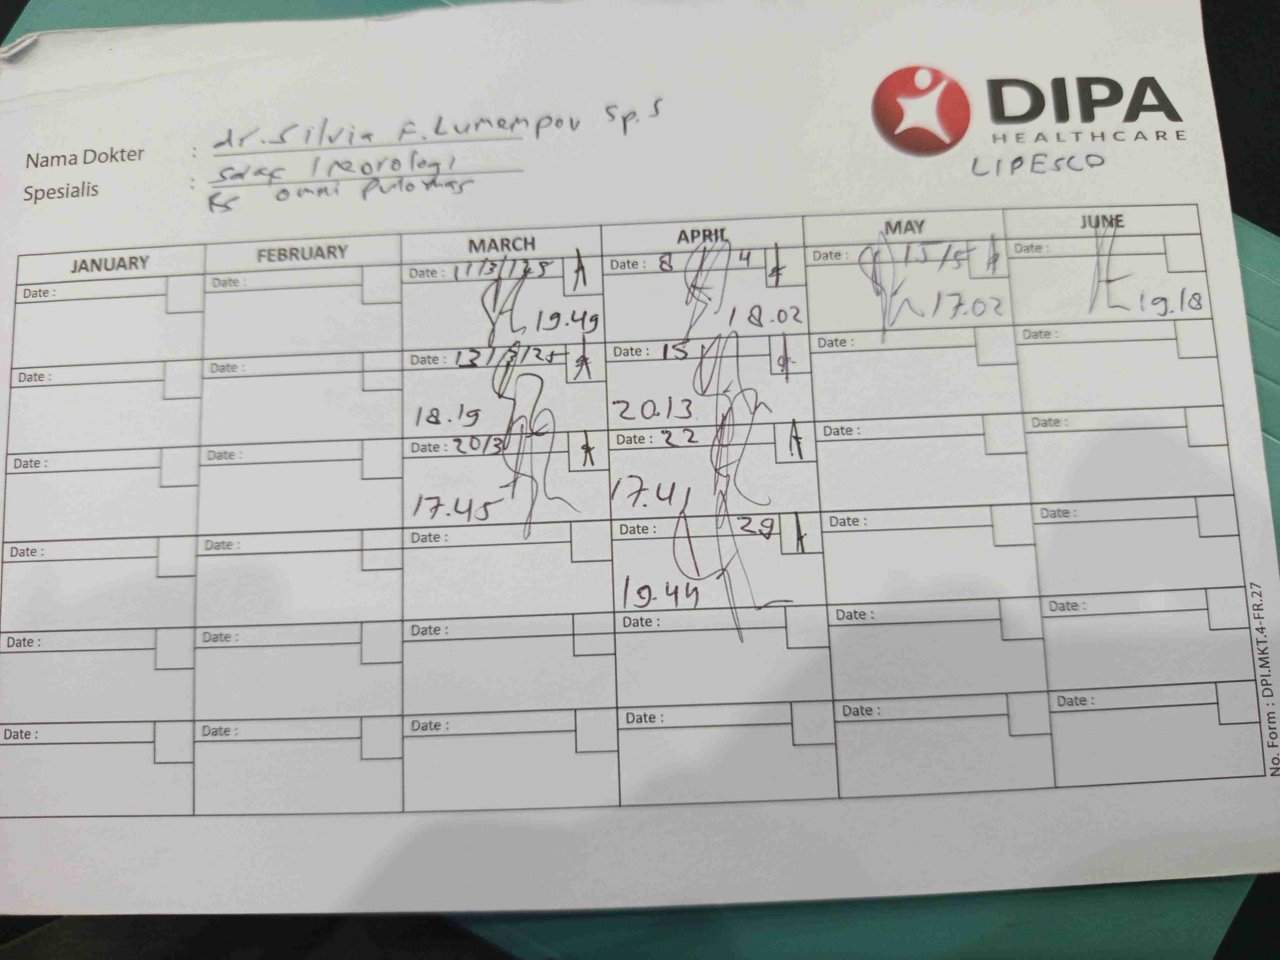 DIPA
HEALTHCARE
LIPESCO
Nama Dokter : dr. Silvia F. Lumempou Sp.S
Spesialis : saraf / neorologi
RS omni Pulomas
JANUARY FEBRUARY MARCH APRIL MAY JUNE
Date : Date : Date : 11/3/25 A Date : 8 4 Date : 15/5 A Date :
19.49 18.02 17.02 19.18
Date : Date : Date : 13/3/25 A Date : 15 Date : Date :
18.19 20.13
Date : Date : Date : 20/3 A Date : 22 A Date : Date :
17.45 17.41
Date : Date : Date : Date : 29 A Date : Date :
19.44
Date : Date : Date : Date : Date : Date :
Date : Date : Date : Date : Date : Date :
No. Form : DPI.MKT.4-FR.27